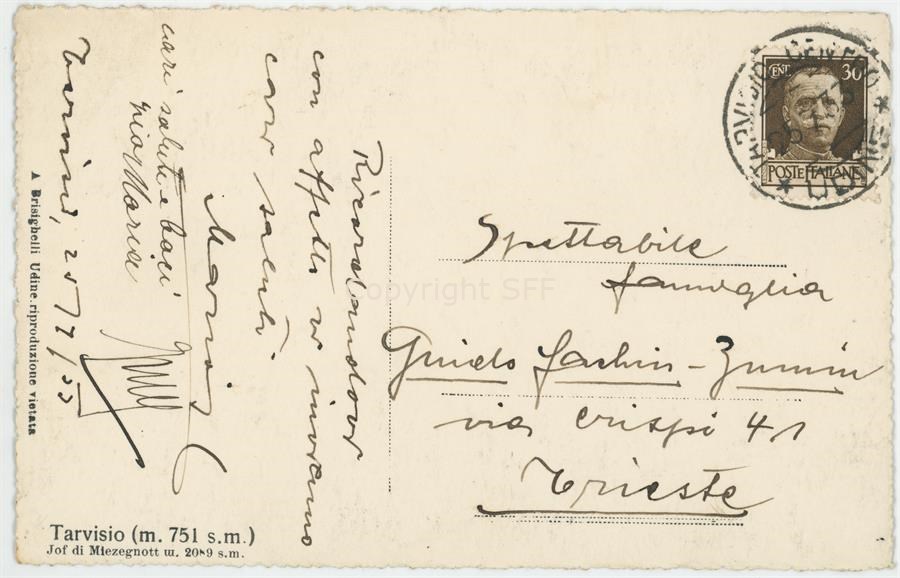 Ricordandovi
con affetto vi inviamo
cari saluti
Maria
cari saluti e baci
Tarvisio, 25/7/33
▲ Brisighelli Udine.riproduzione vietata
Tarvisio (m. 751 s.m.)
Jof di Miezegnott m. 2089 s.m.
CENT 30
POSTE ITALIANE
TARVISIO CENTRALE
UDINE
Spettabile
famiglia
Guido
via Crispi 41
Trieste
Copyright SFF